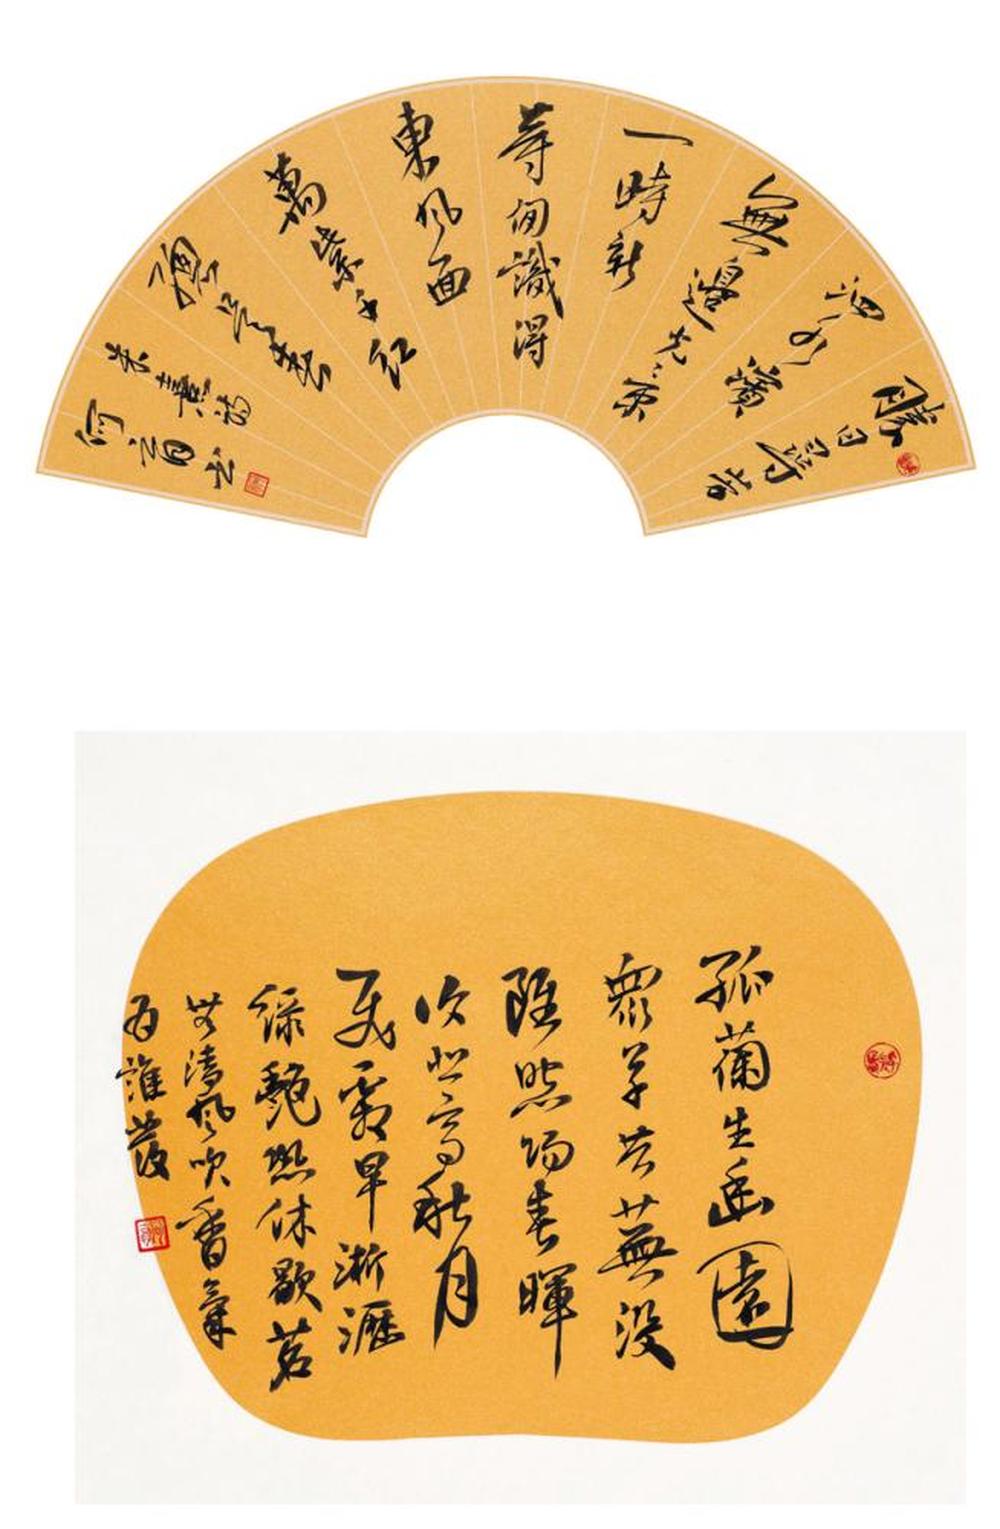 勝日尋芳
泗水濱
無邊光景
一時新
等閑識得
東風面
萬紫千紅
總是春
朱熹詩
孤蘭生幽園
眾草共蕪沒
雖照陽春暉
復悲高秋月
飛霜早淅瀝
綠艷恐休歇若
無清風吹香氣
為誰發